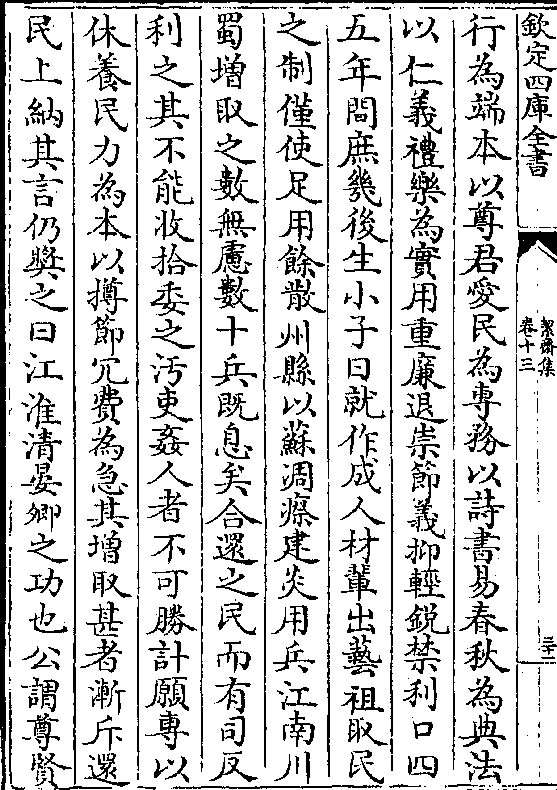 欽定四庫全書
絜齋集
卷十三
三十二
行為端本以尊君愛民為專務以詩書易春秋為典法
以仁義禮樂為實用重廉退崇節義抑輕銳禁利口四
五年間庶幾後生小子日就作成人材輩出藝祖取民
之制僅使足用餘散州縣以蘇凋瘵建炎用兵江南川
蜀增取之數無慮數十兵既息矣合還之民而有司反
利之其不能收拾委之汚吏姦人者不可勝計願專以
休養民力為本以撙節冗費為急其增取甚者漸斥還
民上納其言仍奬之曰江淮清晏卿之功也公謂尊賢